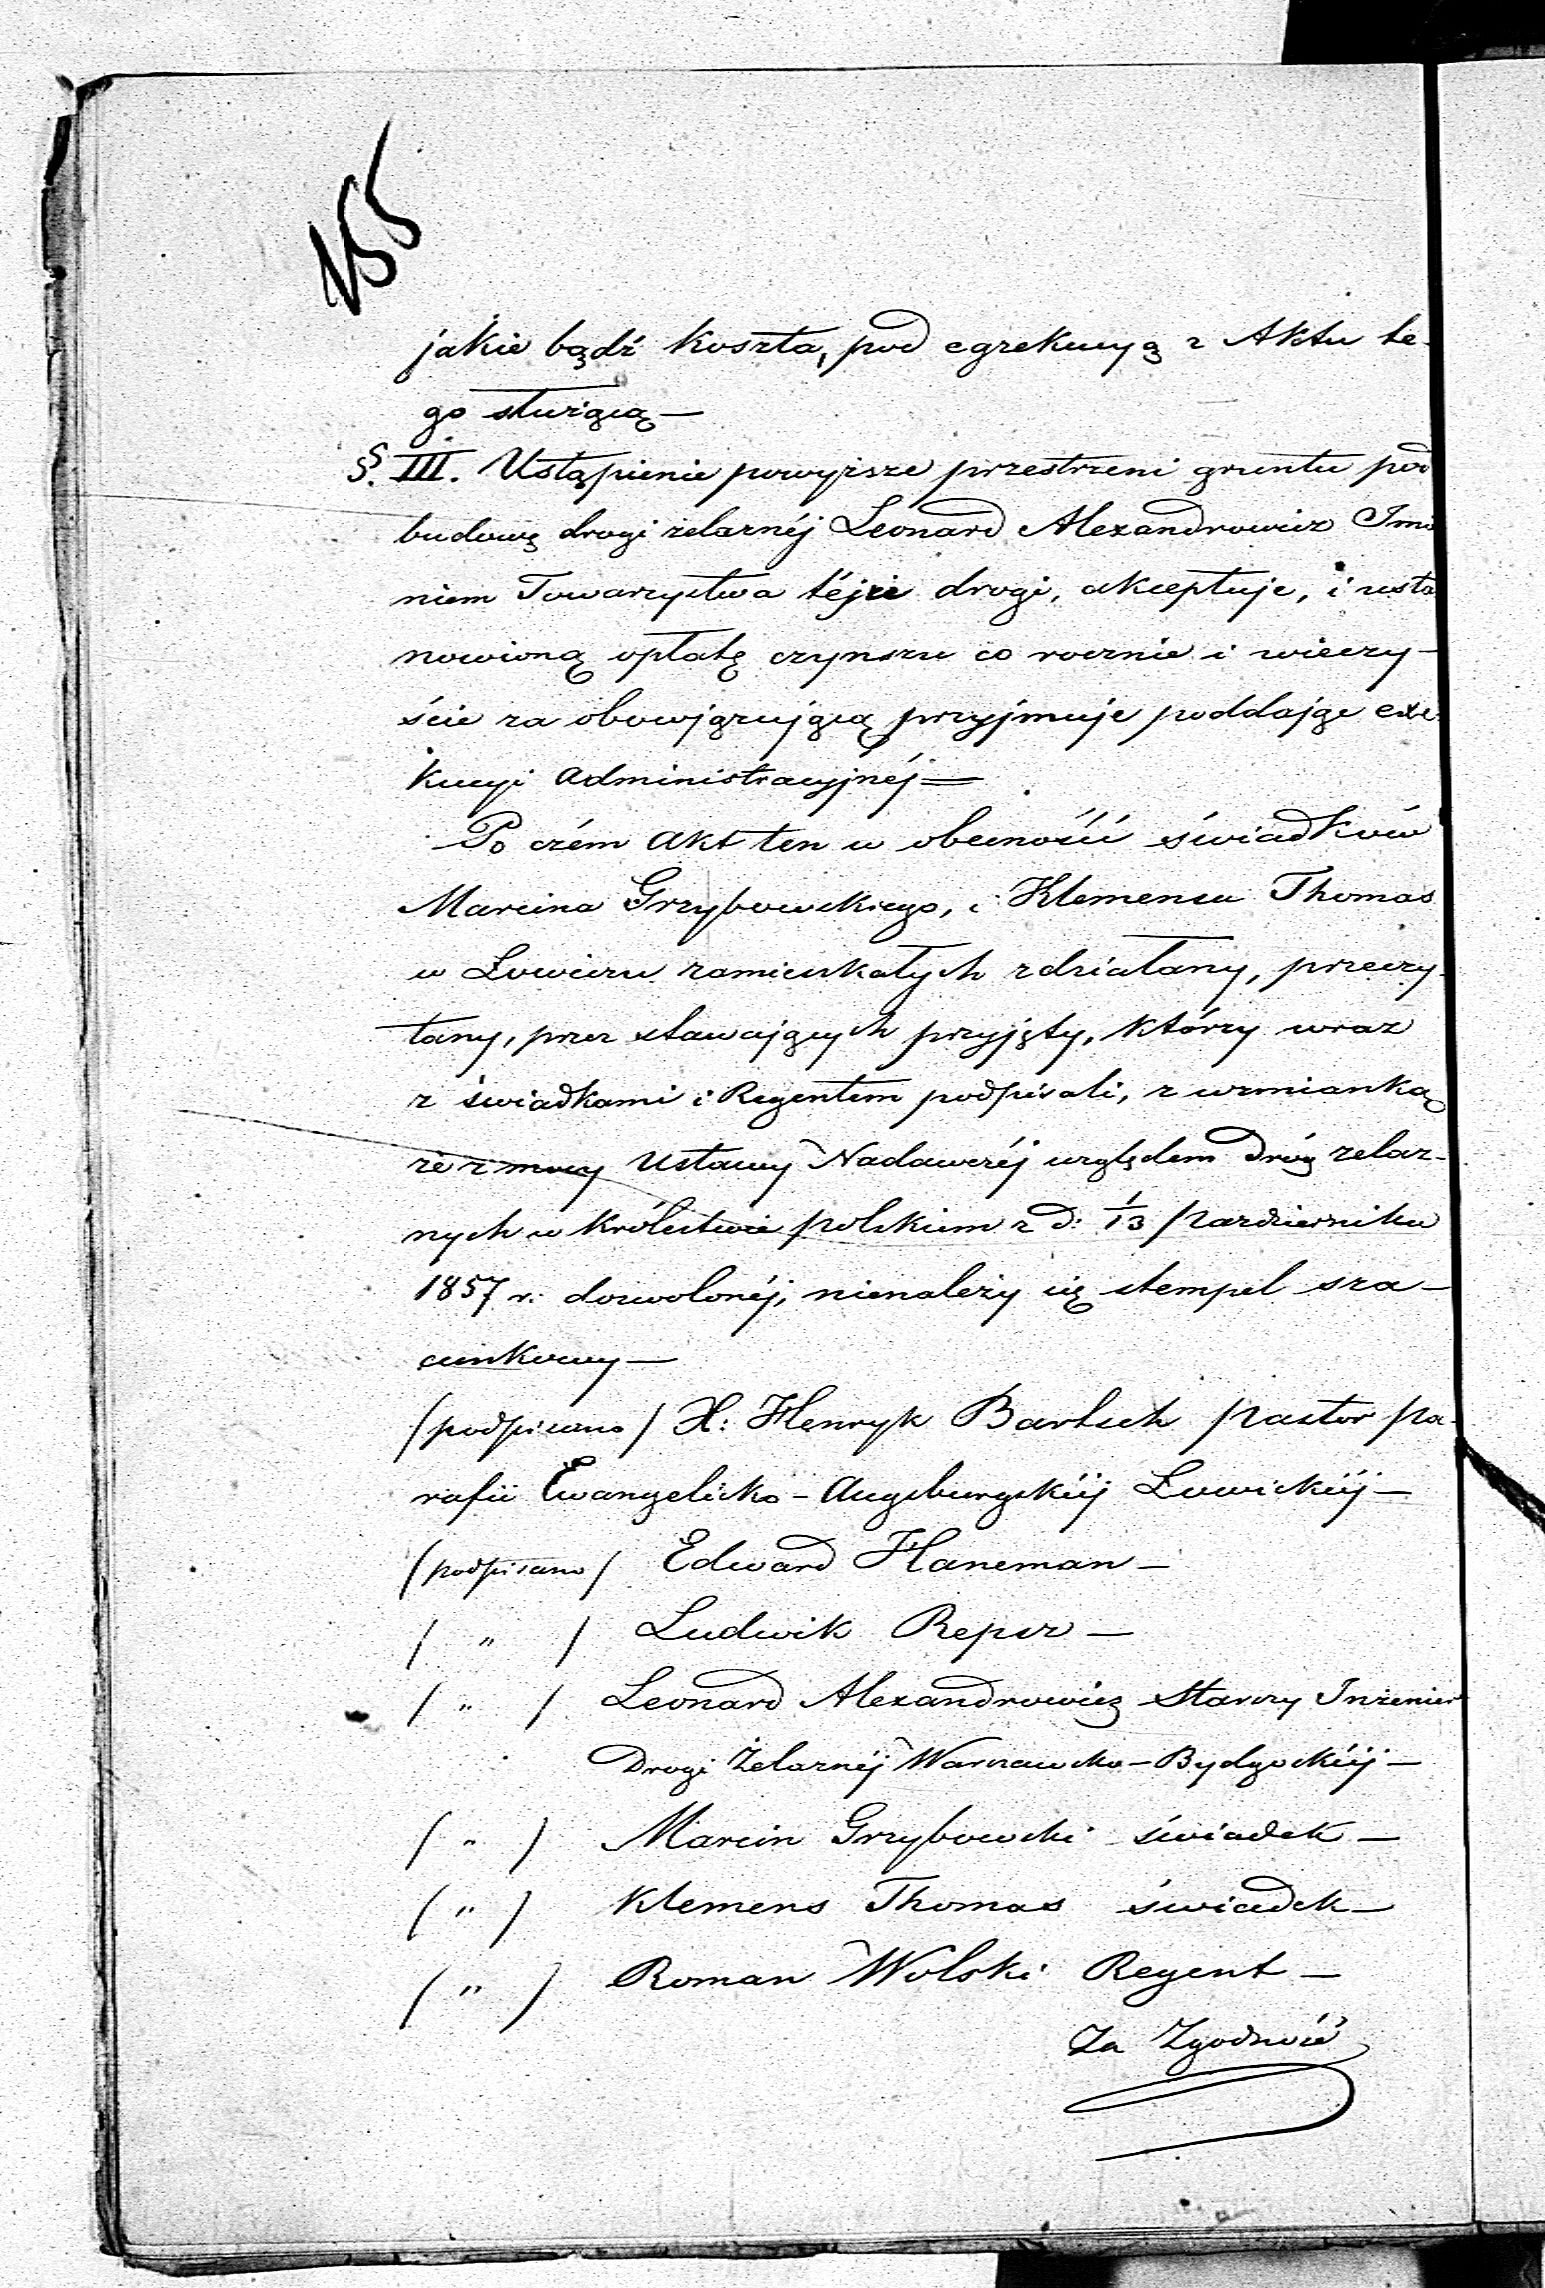 155
jakie bądź koszta, pod egzekucyą z Aktu te-
go służącą —
§. III. Ustąpienie powyższe przestrzeni gruntu pod
budowę drogi żelaznéj Leonard Alexandrowicz Imie
niem Towarzystwa téjże drogi, akceptuje, i usta
nowioną opłatę czynszu co rocznie i wieczy-
ście za obowiązującą przyjmuje poddając exe-
kucyi administracyjnéj =
Po czém Akt ten w obecności świadków
Marcina Grzybowskiego, i Klemensa Thomas
w Łowiczu zamieszkałych zdziałany, przeczy-
tany, przez stawających przyjęty, którzy wraz
z świadkami i Regentem podpisali, z wzmianką
że z mocy Ustawy Nadawczéj względem dróg żelaz-
nych w Królestwie polskiem z d: 1/13 Października
1857 r. dozwolonéj, nienależy się stempel sza-
cunkowy —
(podpisano) X: Henryk Bartsch Pastor pa-
rafii Ewangelicko - Augsburgskiéj Łowickiéj —
(podpisano) Edward Haneman —
( " ) Ludwik Repsz —
( " ) Leonard Alexandrowicz Starszy Inżenier
Drogi Żelaznéj Warszawsko - Bydgoskiéj —
( " ) Marcin Grzybowski świadek —
( " ) Klemens Thomas świadek —
( " ) Roman Wolski Regent —
Za Zgodność